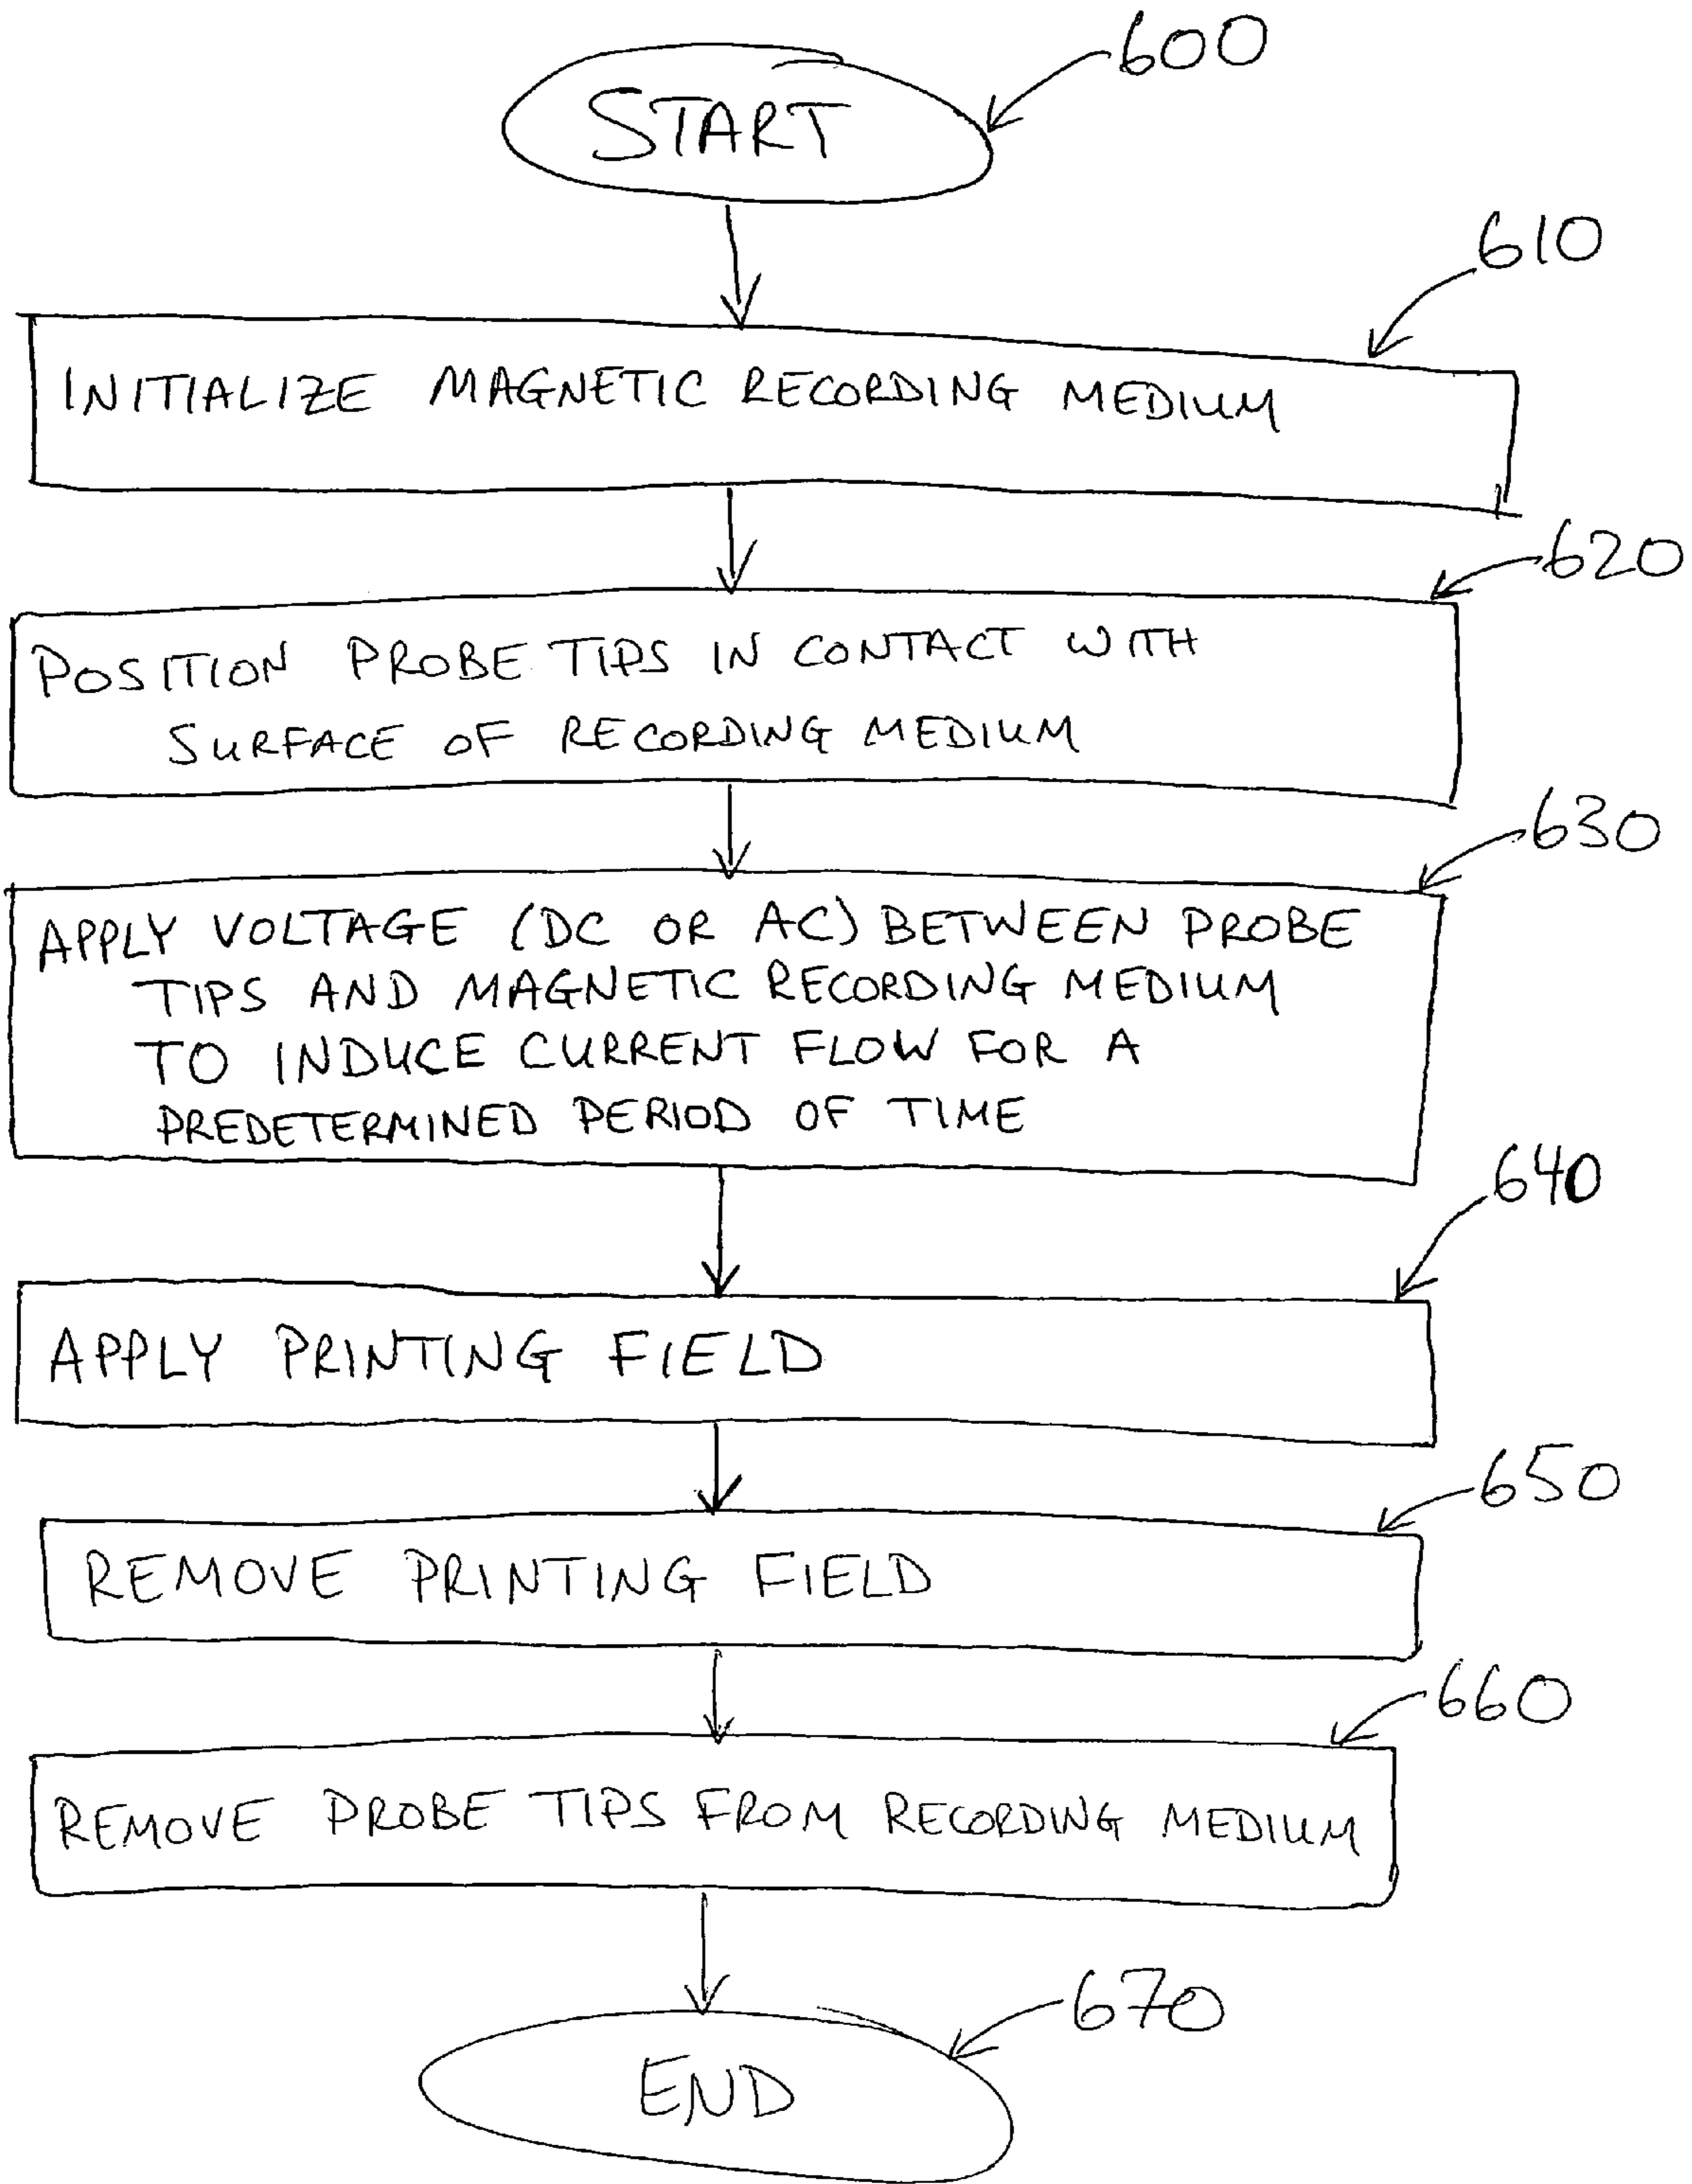 600
START
610
INITIALIZE MAGNETIC RECORDING MEDIUM
620
POSITION PROBE TIPS IN CONTACT WITH
SURFACE OF RECORDING MEDIUM
630
APPLY VOLTAGE (DC OR AC) BETWEEN PROBE
TIPS AND MAGNETIC RECORDING MEDIUM
TO INDUCE CURRENT FLOW FOR A
PREDETERMINED PERIOD OF TIME
640
APPLY PRINTING FIELD
650
REMOVE PRINTING FIELD
660
REMOVE PROBE TIPS FROM RECORDING MEDIUM
670
END